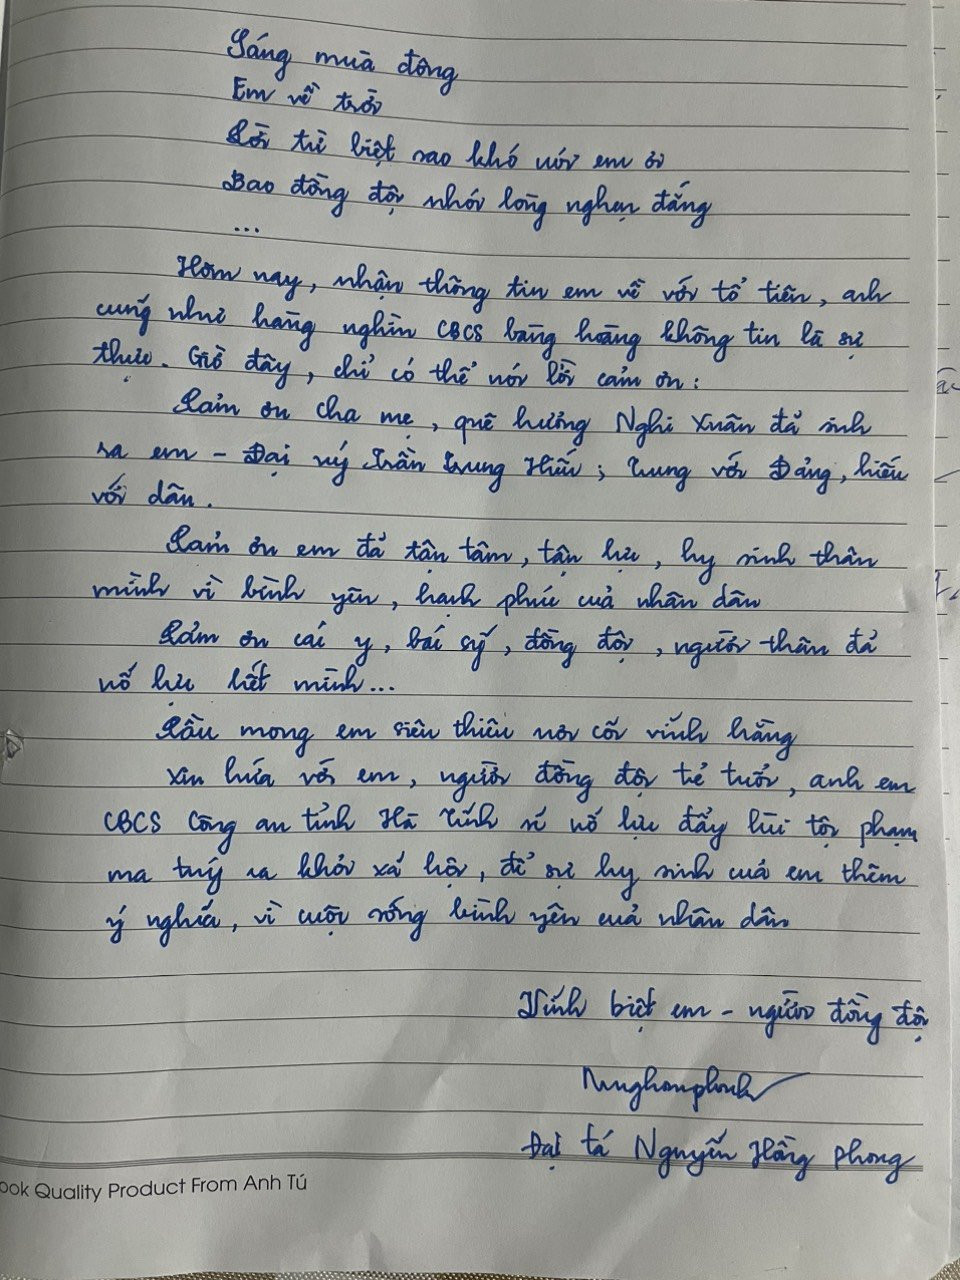 Sáng mùa đông
Em về trời
Lời từ biệt sao khó nói em ơi
Bao đồng đội nhói lòng nghẹn đắng
...
Hôm nay, nhận thông tin em về với tổ tiên, anh
cũng như hàng nghìn CBCS bàng hoàng không tin là sự
thực. Giờ đây, chỉ có thể nói lời cảm ơn:
Cảm ơn cha mẹ, quê hương Nghi Xuân đã sinh
ra em - Đại uý Trần Trung Hiếu; Trung với Đảng, hiếu
với dân.
Cảm ơn em đã tận tâm, tận lực, hy sinh thân
mình vì bình yên, hạnh phúc của nhân dân
Cảm ơn các y, bác sỹ, đồng đội, người thân đã
nỗ lực hết mình...
Cầu mong em siêu thiêu nơi cõi vĩnh hằng
Xin hứa với em, người đồng đội trẻ tuổi, anh em
CBCS Công an tỉnh Hà Tĩnh sẽ nỗ lực đẩy lùi tội phạm
ma tuý ra khỏi xã hội, để sự hy sinh của em thêm
ý nghĩa, vì cuộc sống bình yên của nhân dân
Vĩnh biệt em - người đồng đội
Đại tá Nguyễn Hồng Phong
ook Quality Product From Anh Tú